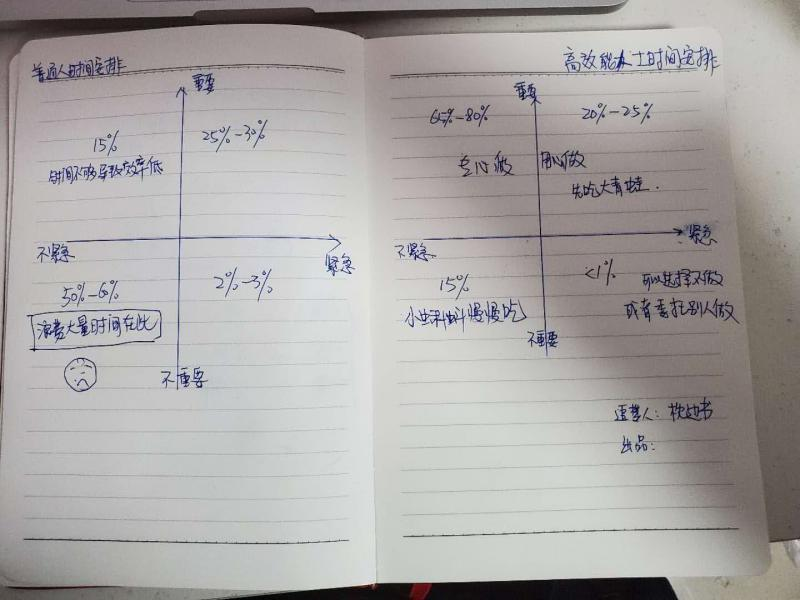 普通人时间安排
重要
15%
25%-30%
时间不够导致效率低
不紧急
紧急
50%-60%
2%-3%
浪费大量时间在此
不重要
高效能人士时间安排
重要
65%-80%
20%-25%
专心做
用心做
先吃大青蛙.
不紧急
紧急
15%
<1%
可以选择不做
小蝌蚪慢慢吃
或者委托别人做
不重要
枕边书
出品: